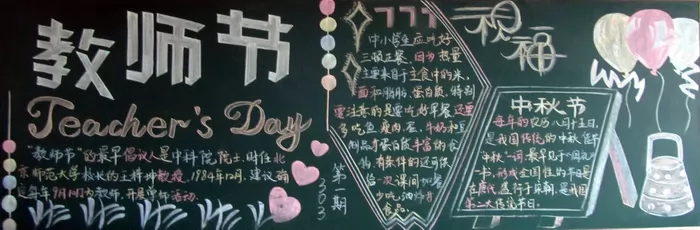 教师节
Teacher's Day
"教师节"的最早倡议人是中科院院士、时任北
京师范大学校长的王梓坤教授，1984年12月，建议确
每年9月10为教师，开展尊师活动。
第一期
303
777
中小学生应吃好
三顿正餐，因为热量
主要来自于主食中的米、
面和脂肪、蛋白质，特别
要注意的是要吃好早餐还要
多吃鱼、瘦肉、蛋、牛奶和豆
制品等蛋白质丰富的食
物，有条件的还可以
给一次课间加餐
少吃油炸
食品。
祝福
中秋节
每年的农历八月十五日，
是我国传统的中秋佳节
中秋一词，最早见于《周礼》
一书，形成全国性的节日是
在唐代，盛行于宋朝，是我国
第二大传统节日。